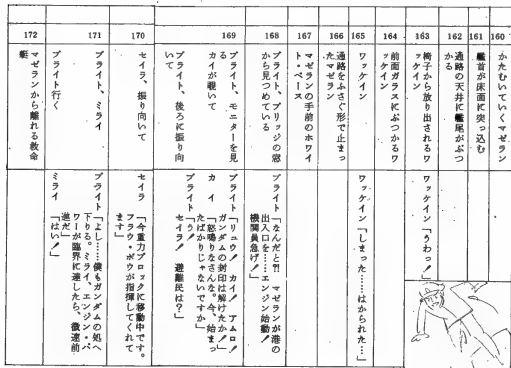 160
かたむいていくマゼラン
161
艦首が床面に突っ込む
162
通路の天井に艦尾がぶつ
かる
163
椅子から放り出されるワ
ッケイン
ワッケイン「うわっ!」
164
前面ガラスにぶつかるワ
ッケイン
165
ワッケイン
ワッケイン「しまった……はかられた…」
166
通路をふさぐ形で止まっ
たマゼラン
167
マゼランの手前のホワイ
ト・ベース
168
ブライト、ブリッジの窓
から見つめている
ブライト「なんだと?! マゼランが港の
出入口を……エンジン始動!
機関員急げ!」
169
ブライト、モニターを見
る
カイが覗いて
ブライト、後ろに振り向
いて
ブライト「リュウ! カイ! アムロ!
ガンダムの封印は解けたか!」
カイ「怒鳴りなさんな。今、始まっ
たばかりじゃないですか」
ブライト「う!
セイラ! 避難民は?」
170
セイラ、振り向いて
セイラ「今重力ブロックに移動中です。
フラウ・ボウが指揮してくれて
ます」
171
ブライト、ミライ
ブライト行く
ブライト「よし……僕もガンダムの処へ
下りる。ミライ、エンジン・パ
ワーが臨界に達したら、微速前
進だ」
ミライ「はい!」
172
マゼランから離れる救命
艇